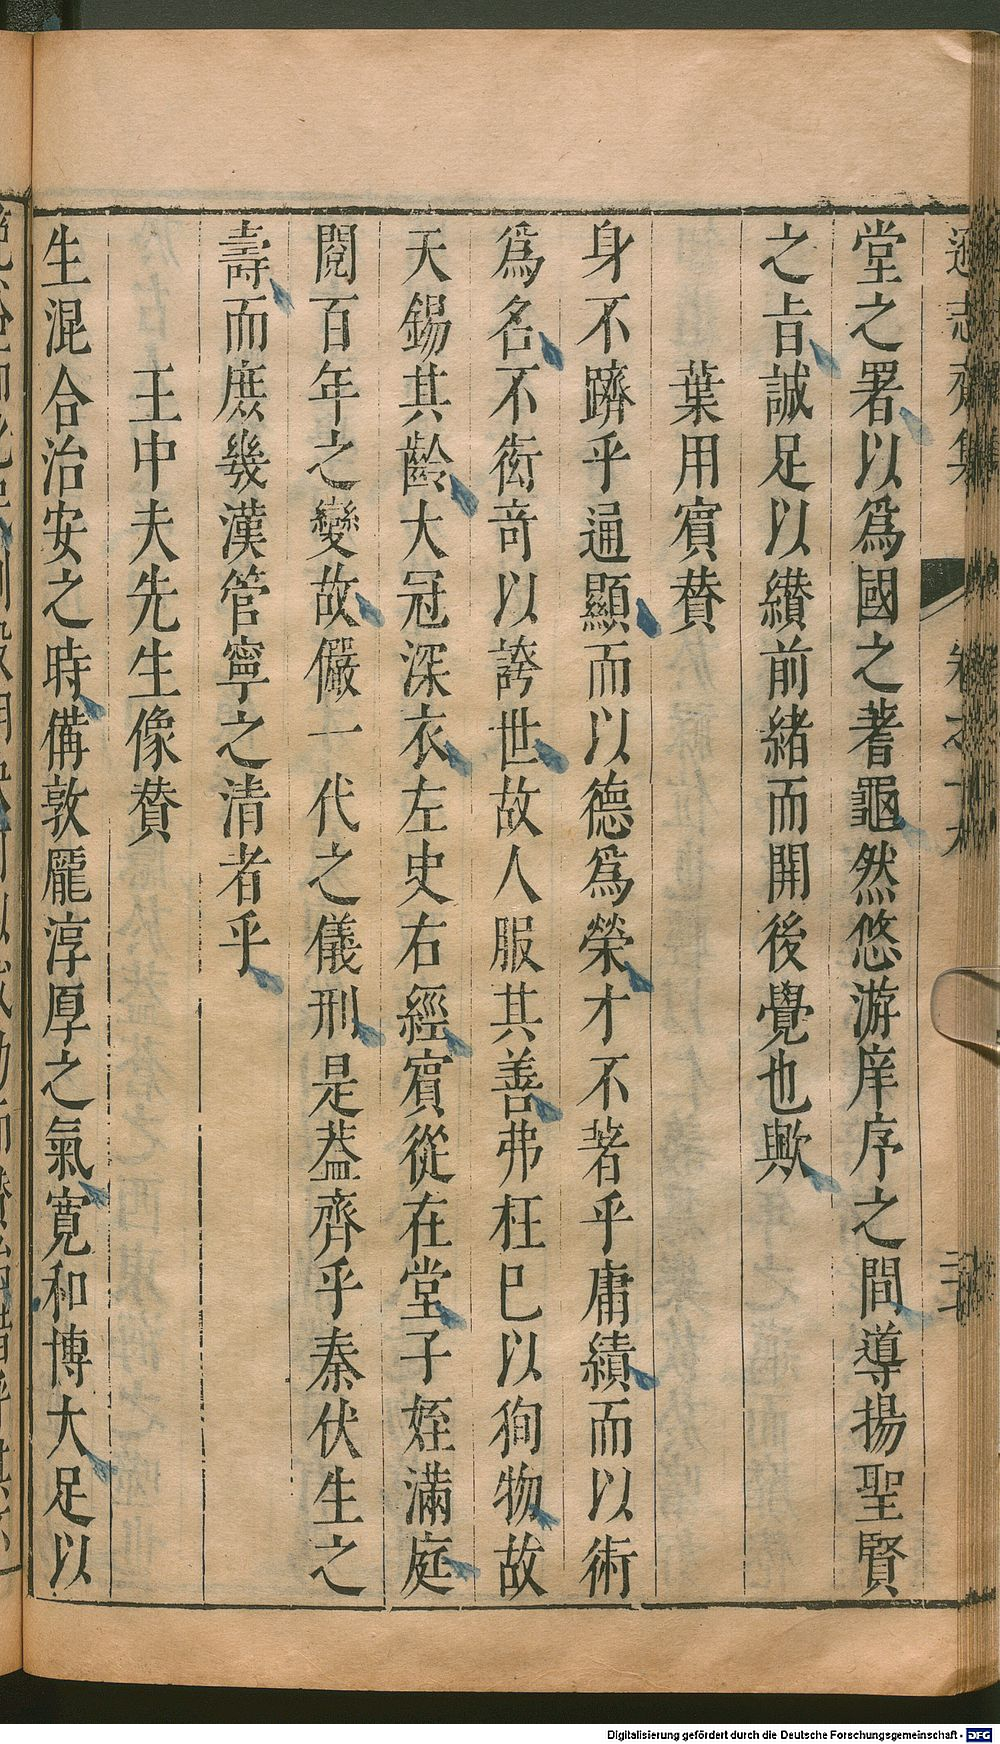 遜志齋集 卷之十九 三十
堂之署以爲國之蓍龜然悠游庠序之間導揚聖賢
之㫖誠足以纉前緒而開後覺也歟
葉用賔賛
身不躋乎通顯而以德爲榮才不著乎庸績而以術
爲名不衒竒以誇世故人服其善弗枉巳以狥物故
天錫其齡大冠深衣左史右經賔從在堂子姪滿庭
閱百年之變故儼一代之儀刑是葢齊乎秦伏生之
壽而庶幾漢管寧之清者乎
王中夫先生像賛
生混合治安之時備敦龎淳厚之氣寬和博大足以
Digitalisierung gefördert durch die Deutsche Forschungsgemeinschaft - DFG